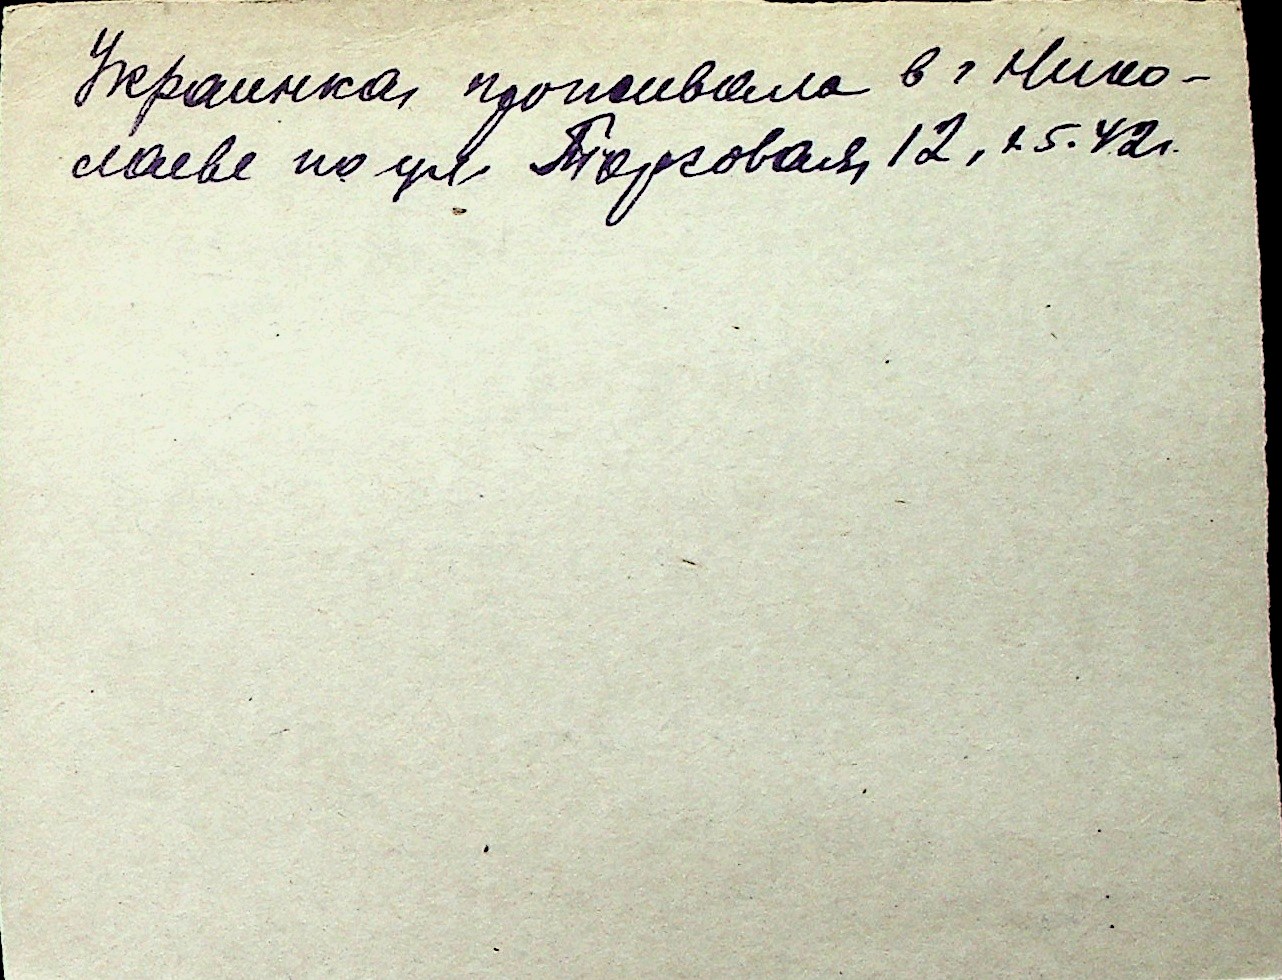 Украинка, проживала в г Нико-
лаеве по ул. Торговая, 12, 1.5.42г.